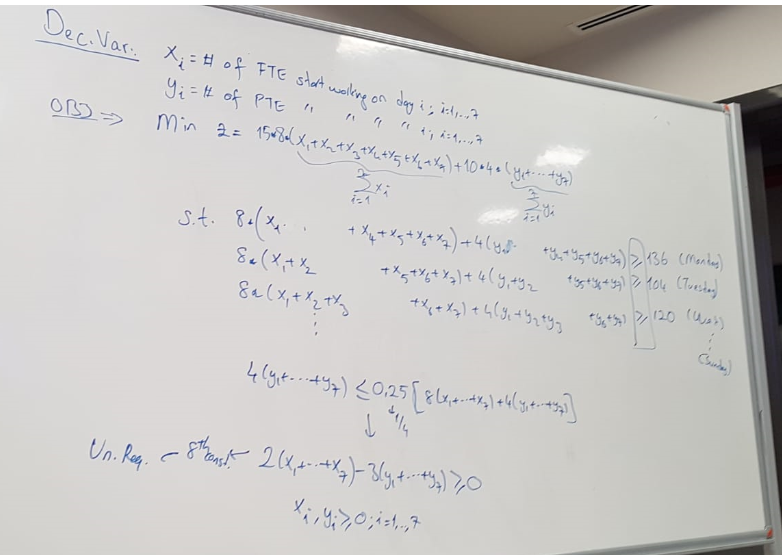 Dec. Var.: xᵢ = # of FTE start working on day i; i=1,..,7
yᵢ = # of PTE " " " " i; i=1,...,7
OBJ ⇒ Min z = 15*8*(x₁+x₂+x₃+x₄+x₅+x₆+x₇) + 10*4*(y₁+...+y₇)
∑ᵢ₌₁⁷ xᵢ ∑ᵢ₌₁⁷ yᵢ
s.t. 8*(x₁... +x₄+x₅+x₆+x₇) + 4(y₁ +y₄+y₅+y₆+y₇) ≥ 136 (Monday)
8*(x₁+x₂ +x₅+x₆+x₇) + 4(y₁+y₂ +y₅+y₆+y₇) ≥ 104 (Tuesday)
8*(x₁+x₂+x₃ +x₆+x₇) + 4(y₁+y₂+y₃ +y₆+y₇) ≥ 120
⋮ ⋮
(Sunday)
4(y₁+...+y₇) ≤ 0,25 [8(x₁+...+x₇)+4(y₁+...+y₇)]
↓ ↓ 1/4
Un. Req. ← 8th const. ← 2(x₁+...+x₇) - 3(y₁+...+y₇) ≥ 0
xᵢ, yᵢ ≥ 0; i=1,..,7